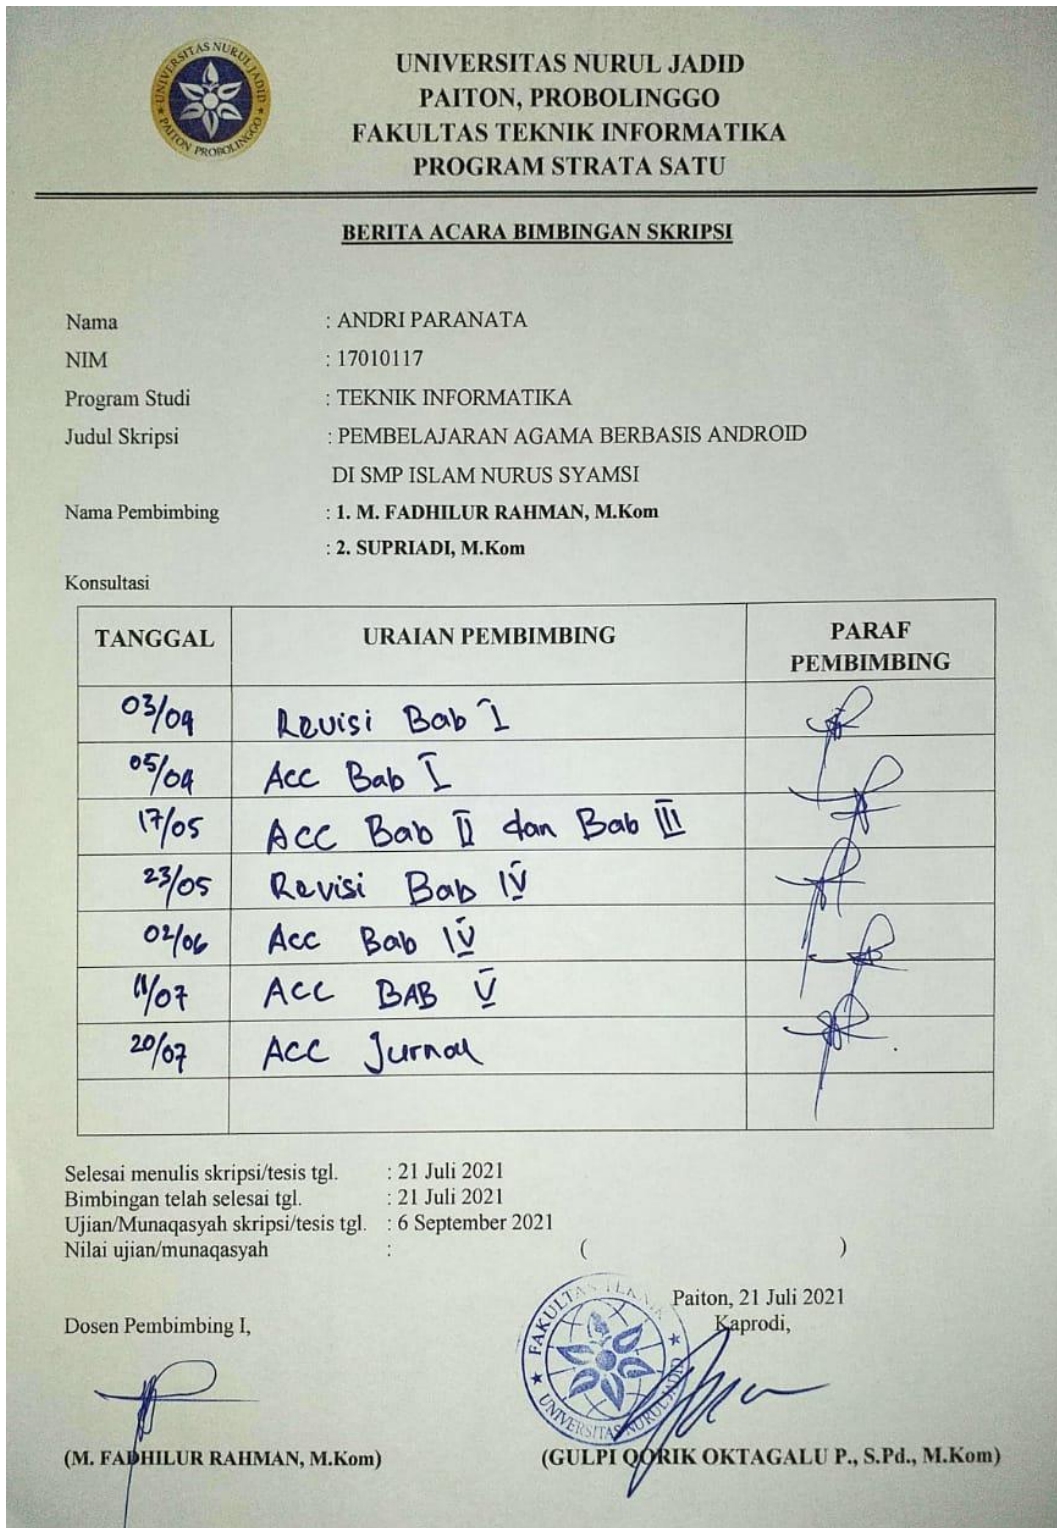 UNIVERSITAS NURUL JADID
PAITON PROBOLINGGO
UNIVERSITAS NURUL JADID
PAITON, PROBOLINGGO
FAKULTAS TEKNIK INFORMATIKA
PROGRAM STRATA SATU
BERITA ACARA BIMBINGAN SKRIPSI
Nama : ANDRI PARANATA
NIM : 17010117
Program Studi : TEKNIK INFORMATIKA
Judul Skripsi : PEMBELAJARAN AGAMA BERBASIS ANDROID
DI SMP ISLAM NURUS SYAMSI
Nama Pembimbing : 1. M. FADHILUR RAHMAN, M.Kom
: 2. SUPRIADI, M.Kom
Konsultasi
TANGGAL URAIAN PEMBIMBING PARAF
PEMBIMBING
03/04 Revisi Bab I
05/04 Acc Bab I
17/05 Acc Bab II dan Bab III
23/05 Revisi Bab IV
02/06 Acc Bab IV
11/07 Acc BAB V
20/07 Acc Jurnal
Selesai menulis skripsi/tesis tgl. : 21 Juli 2021
Bimbingan telah selesai tgl. : 21 Juli 2021
Ujian/Munaqasyah skripsi/tesis tgl. : 6 September 2021
Nilai ujian/munaqasyah : ( )
Paiton, 21 Juli 2021
Dosen Pembimbing I, Kaprodi,
FAKULTAS TEKNIK
UNIVERSITAS NURUL JADID
(M. FADHILUR RAHMAN, M.Kom) (GULPI QORIK OKTAGALU P., S.Pd., M.Kom)